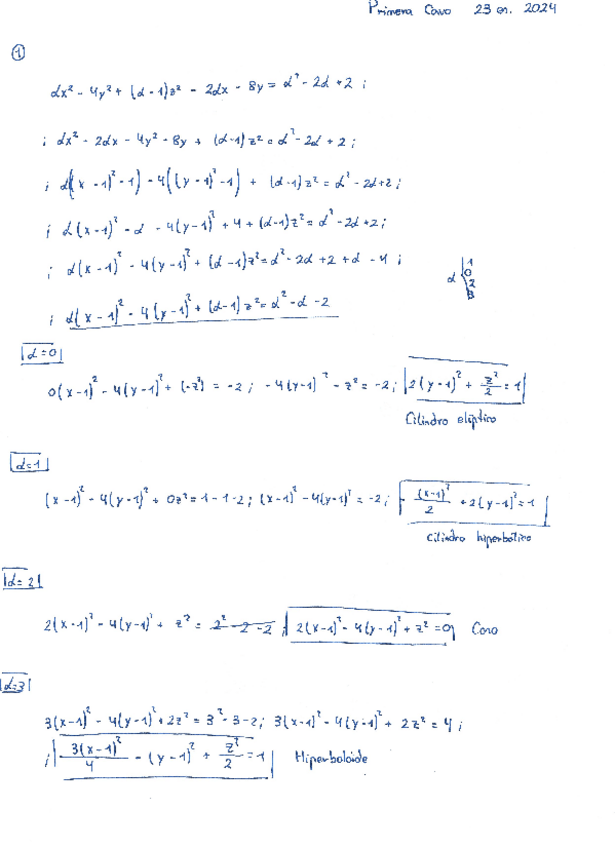 Primera Cavo 23 en. 2024
①
αx² - 4y² + (α-1)z² - 2αx - 8y = α² - 2α + 2 ;
; αx² - 2αx - 4y² - 8y + (α-1)z² = α² - 2α + 2 ;
; α((x-1)² - 1) - 4((y-1)² - 1) + (α-1)z² = α² - 2α + 2 ;
; α(x-1)² - α - 4(y-1)² + 4 + (α-1)z² = α² - 2α + 2 ;
; α(x-1)² - 4(y-1)² + (α-1)z² = α² - 2α + 2 + α - 4 ;
α 1 0 2 3
; α(x-1)² - 4(y-1)² + (α-1)z² = α² - α - 2
α=0
0(x-1)² - 4(y-1)² + (-z²) = -2 ; -4(y-1)² - z² = -2 ; 2(y-1)² + z²/2 = 1
Cilindro elíptico
α=1
(x-1)² - 4(y-1)² + 0z² = 1-1-2 ; (x-1)² - 4(y-1)² = -2 ; - (x-1)²/2 + 2(y-1)² = 1
Cilindro hiperbólico
α=2
2(x-1)² - 4(y-1)² + z² = 2² - 2 - 2 ; 2(x-1)² - 4(y-1)² + z² = 0 Cono
α=3
3(x-1)² - 4(y-1)² + 2z² = 3² - 3 - 2 ; 3(x-1)² - 4(y-1)² + 2z² = 4 ;
; 3(x-1)²/4 - (y-1)² + z²/2 = 1 Hiperboloide